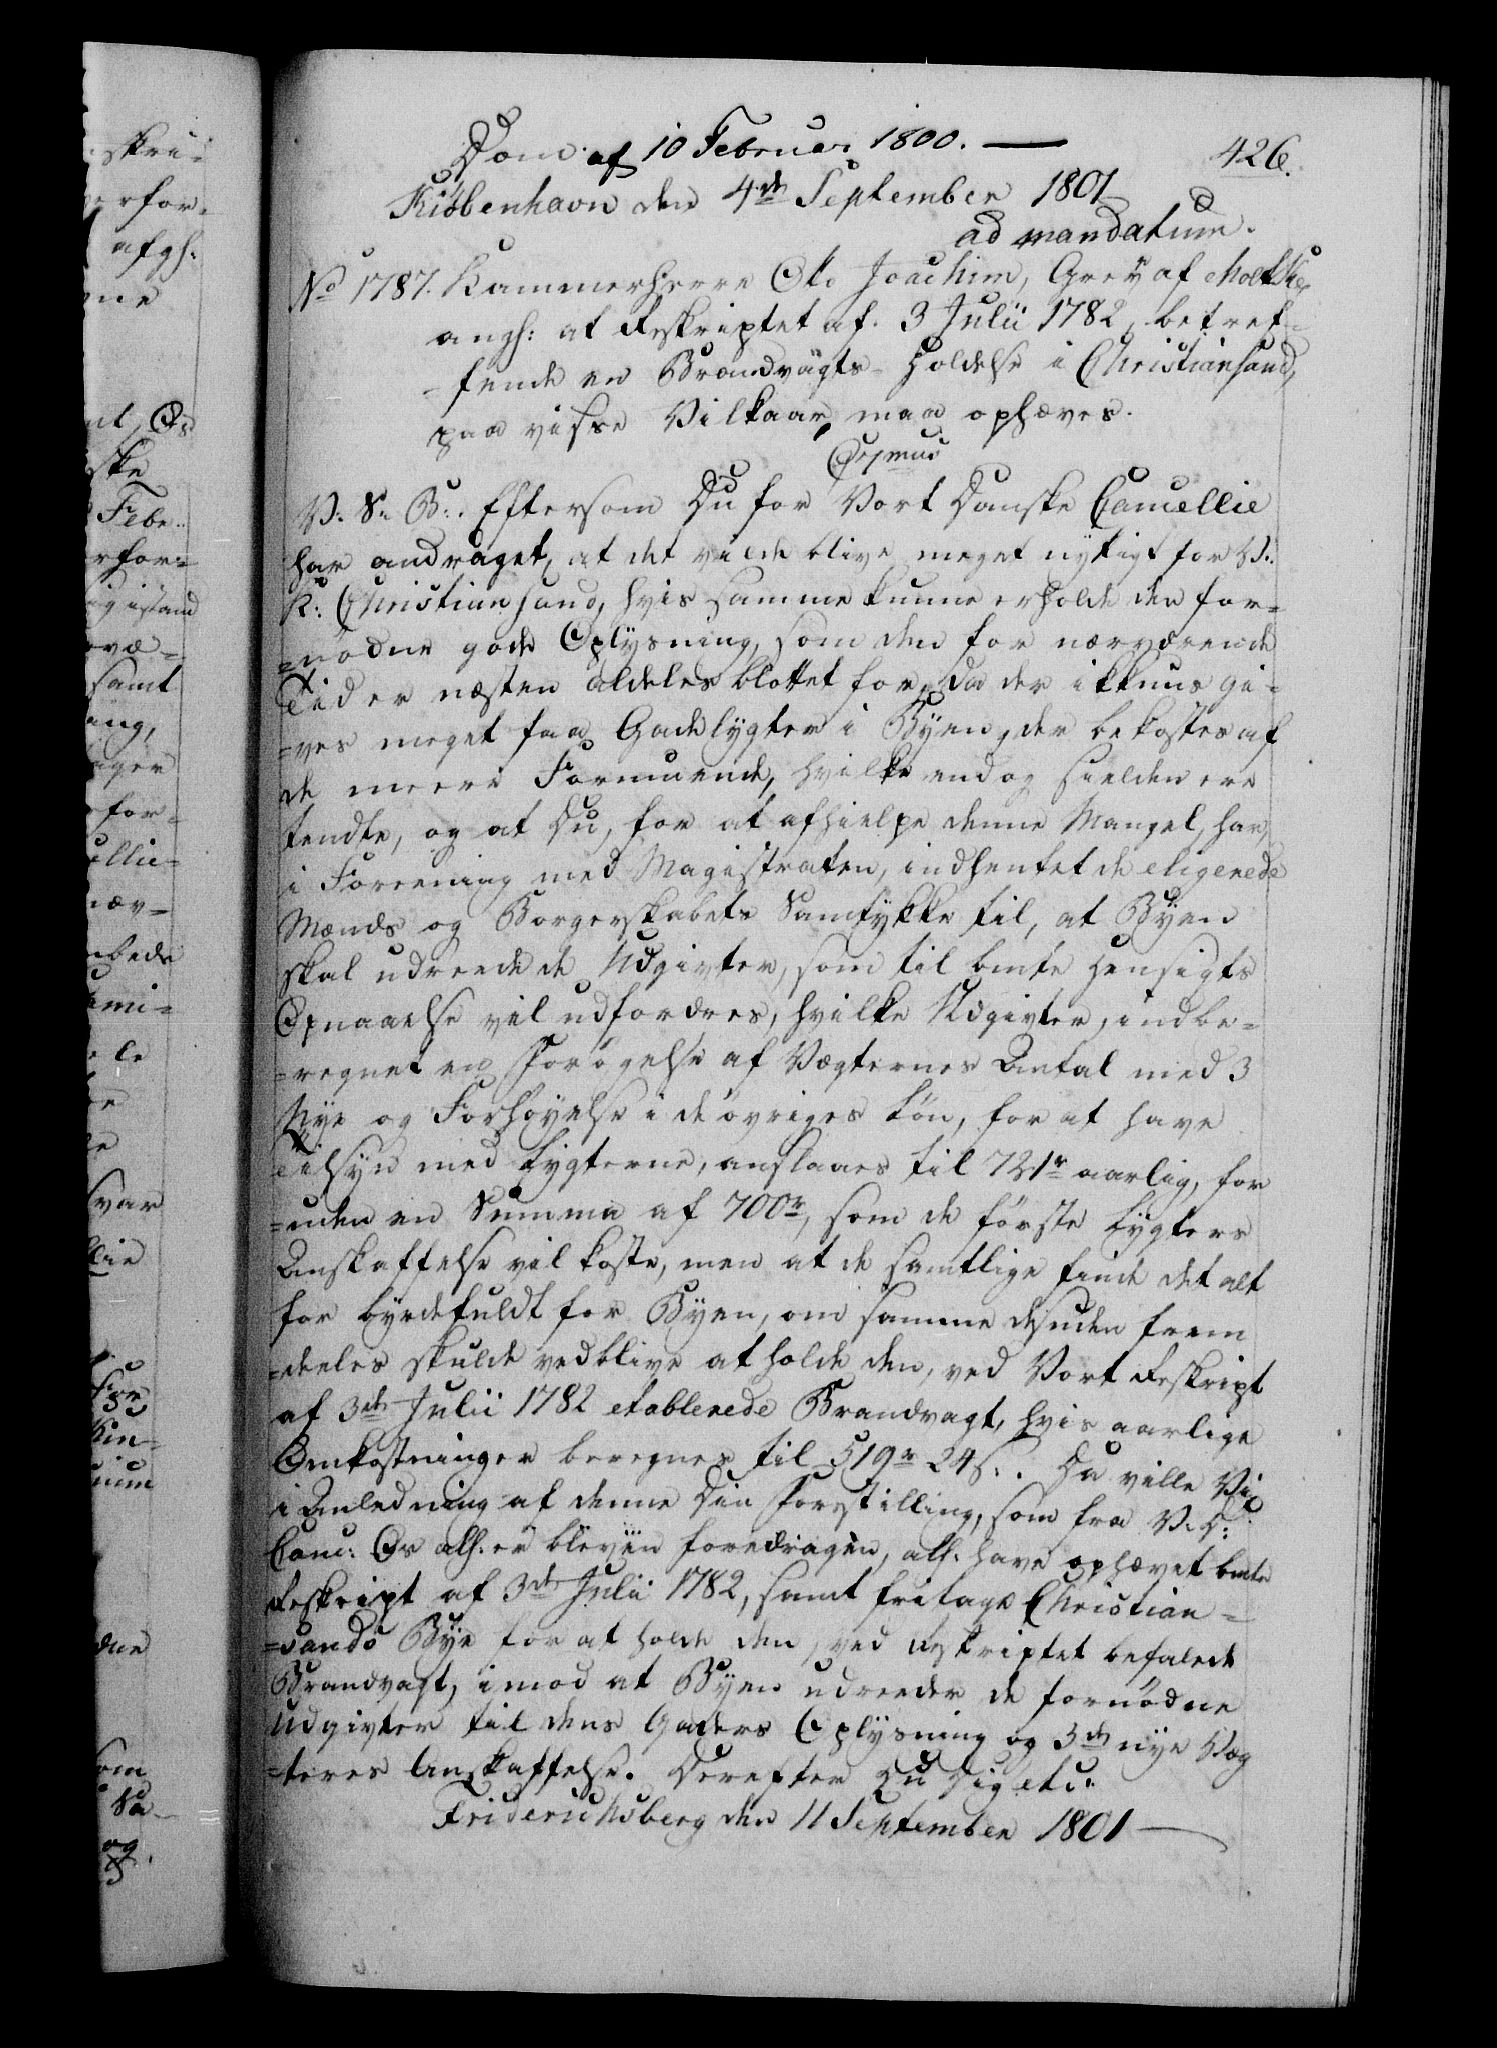 Dom af 10 Februar 1800. —
426.
Kiöbenhavn den 4de September 1801
ad mandatum.
No 1787. Kammerherre Otto Joachim, Grev af Moltke
angh: at Reskriptet af 3 Julii 1782, betref-
fende en Brandvagts-Holdelse i Christiansand,
paa visse Vilkaar, maa ophæves.
V. S. B:. Eftersom Du for Vort Danske Cancellie
har andraget, at det vilde blive meget nyttigt for V.
K: Christiansand, hvis samme kunne erholde den for-
=nödne gode Oplysning, som den for nærværende
Tid er næsten aldeles blottet for, da der ikkuns gi-
=ves meget faa Gadelygter i Byen, der bekostes af
de meere Formuende, hvilke endog sielden ere
tendte, og at Du, for at afhielpe denne Mangel, har,
i Foreening med Magistraten, indhentet de eligerede
Mænds og Borgerskabets Samtykke til, at Byen
skal udreede de Udgivter, som til bmte Hensigts
Opnaaelse vil udfordres, hvilke Udgivter, indbe-
=regnet en Forögelse af Vægternes Antal med 3
Nye og Forhöyelse i de övriges Lön, for at have
Tilsyn med Lygterne, anslaaes til 721r aarlig, for
=uden en Summa af 700r, som de förste Lygters
Anskaffelse vil koste, men at de samtlige finde det alt
for byrdefuldt for Byen, om samme desuden frem
=deeles skulde vedblive at holde den, ved Vort Reskript
af 3de Julii 1782 etablerede Brandvagt, hvis aarlige
Omkostninger beregnes til 519r 24s. Da ville Vi,
i Anledning af denne Din Forestilling, som fra V. D:
Canc: Os alh. er bleven foredragen, alh. have ophævet bmte
Reskript af 3de Julii 1782, samt fritage Christian-
=sands Bye for at holde den, ved Reskriptet befalede
Brandvagt, imod at Byen udreeder de fornödne
Udgivter til dens Gaders Oplysning og 3de nye Væg
=teres Anskaffelse. Derefter Du Dig etc:
Friderichsberg den 11 September 1801 —